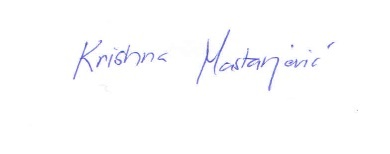 Krishna Mastarjović